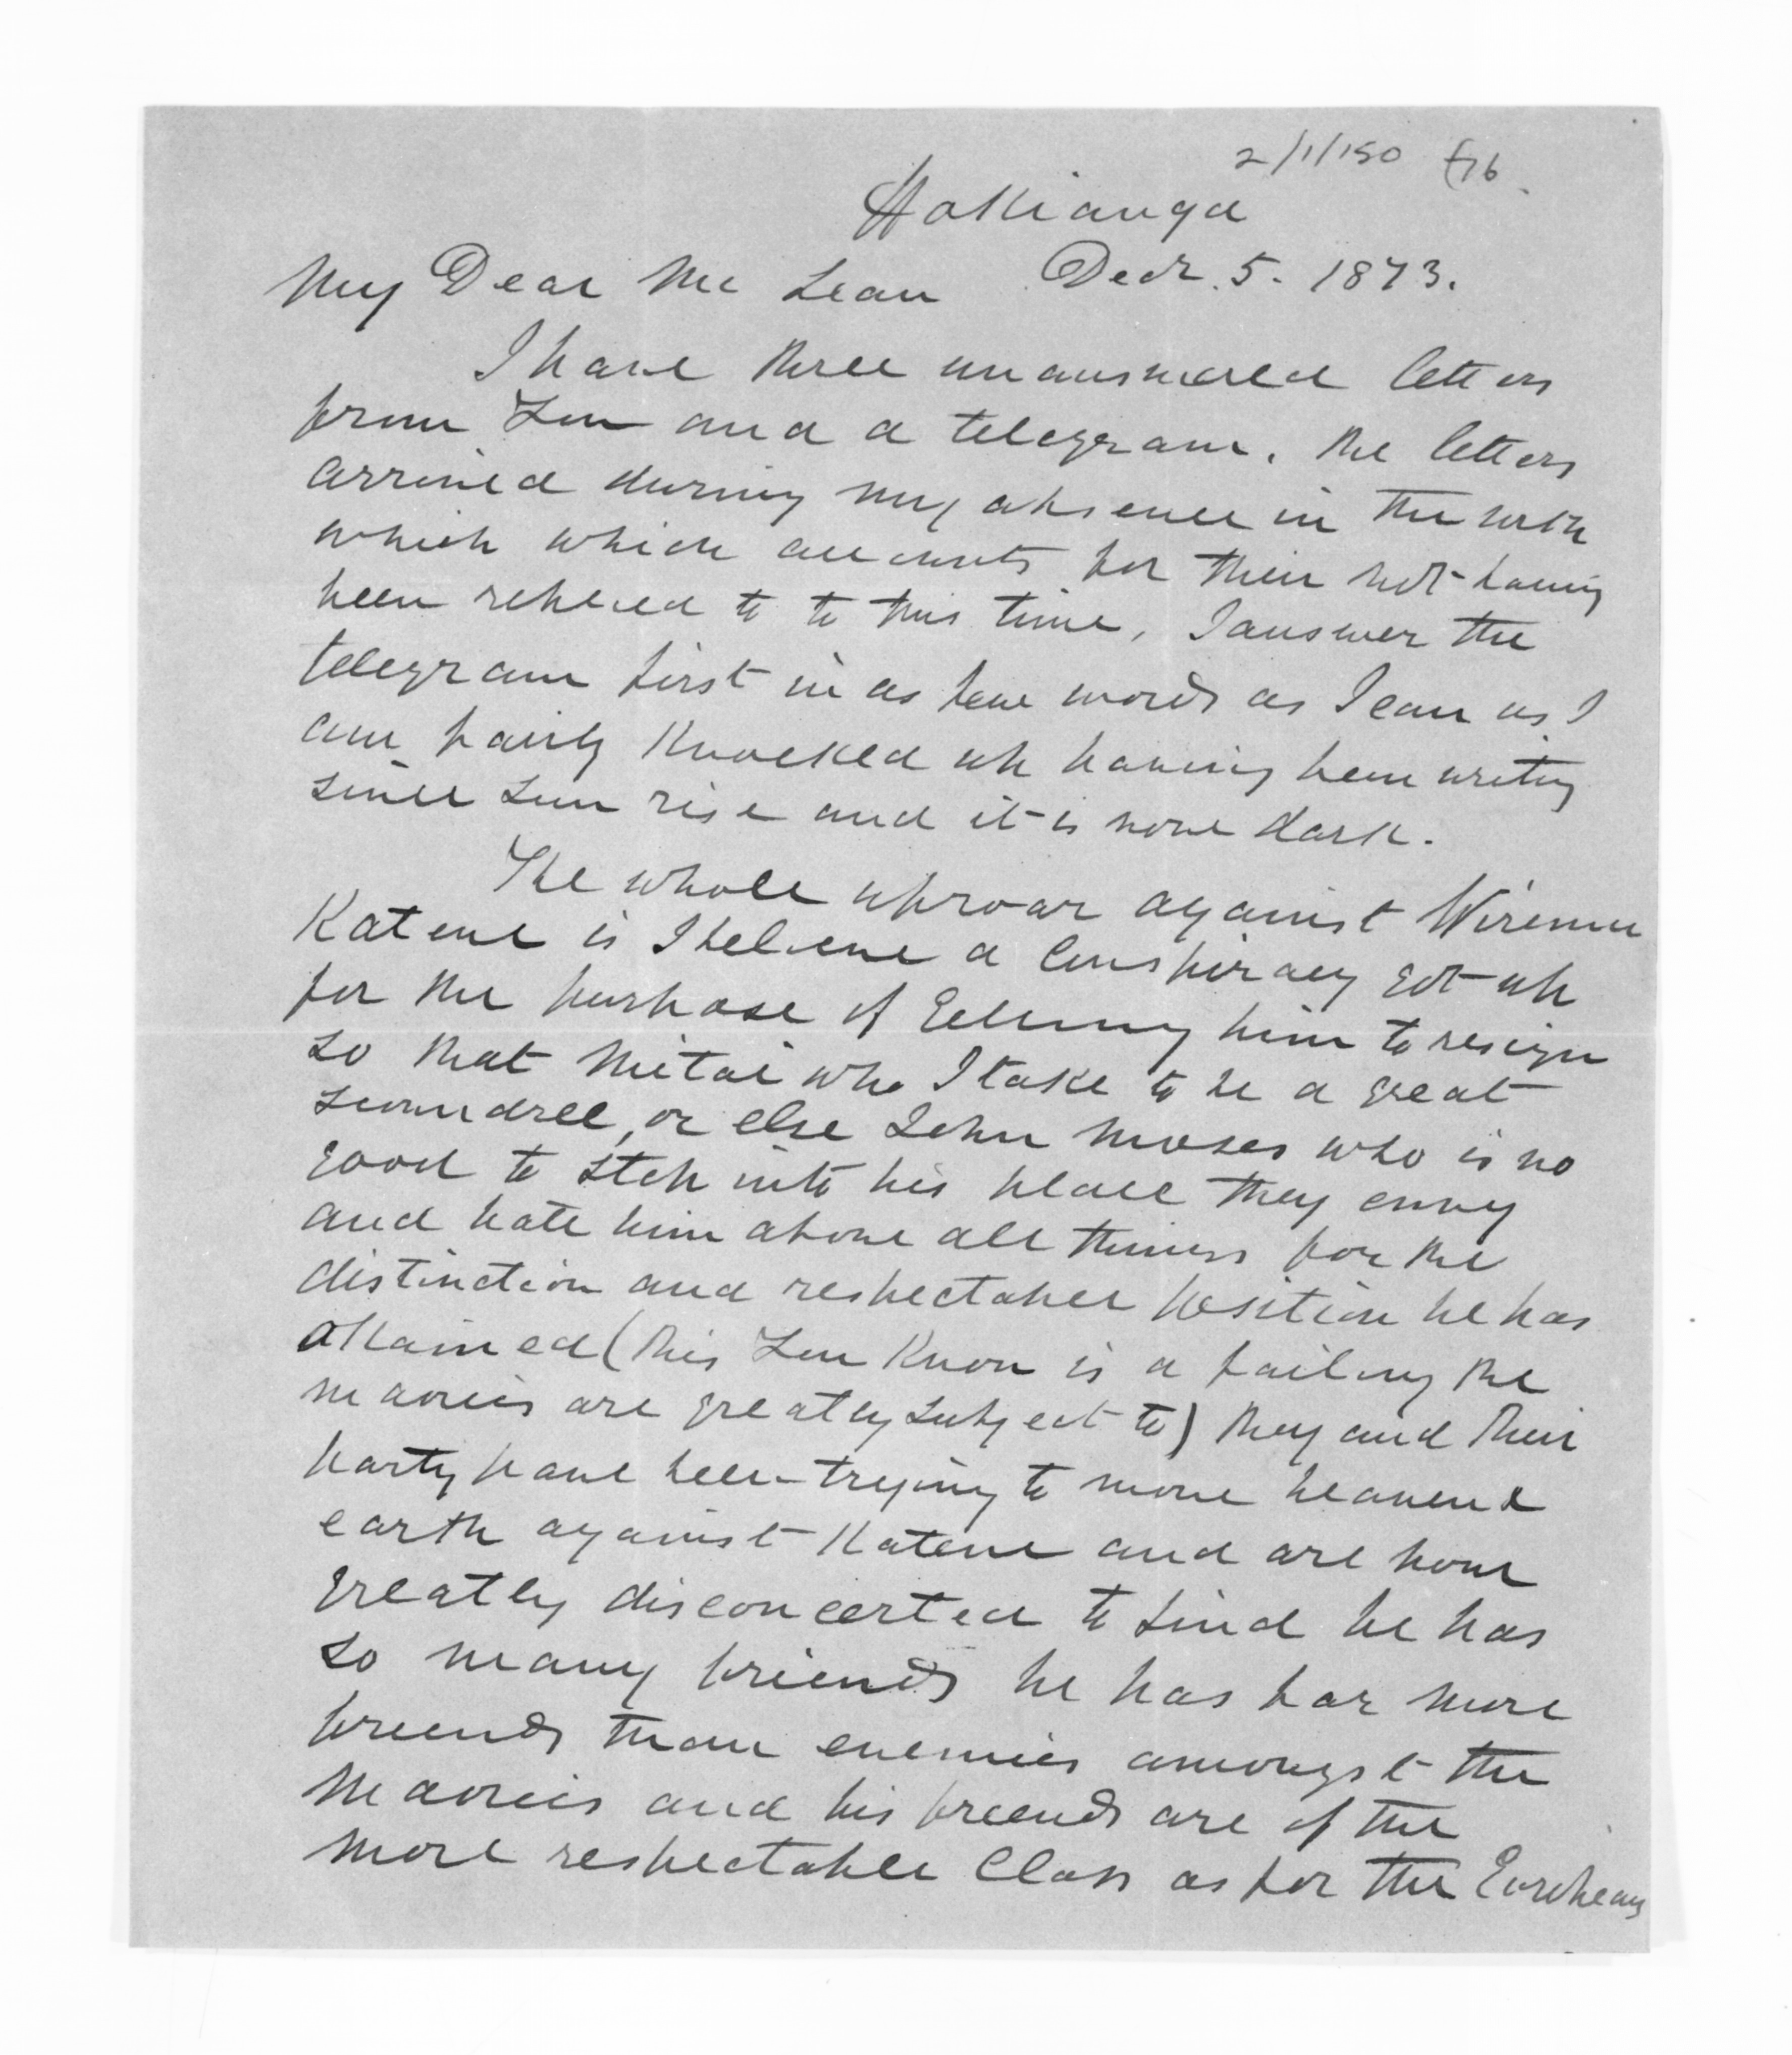 2/1/150 f76.
Hokianga
My Dear Mc Lean Decr. 5. 1873.
I have three unanswered letters
from You and a telegram. the letters
arrived during my absence in the north
which which accounts for their not having
been replied to to this time, I answer the
telegram first in as few words as I can as I
am fairly Knocked up having been writing
since sun rise and it is now dark.
The whole uproar against Wiremu
Katene is I believe a Conspiracy got up
for the purpose of getting him to resign
so that Mitai who I take to be a great
scoundrel, or else John Moses who is no
good to step into his place they envy
and hate him above all things for the
distinction and respectable position he has
attained (this You Know is a failing the
maories are greatly subject to) they and their
party have been trying to move heaven &
earth against Katene and are now
greatly disconcerted to find he has
so many friends he has far more
friends than enemies amongst the
Maories and his friends are of the
more respectable Class as for the Europeans